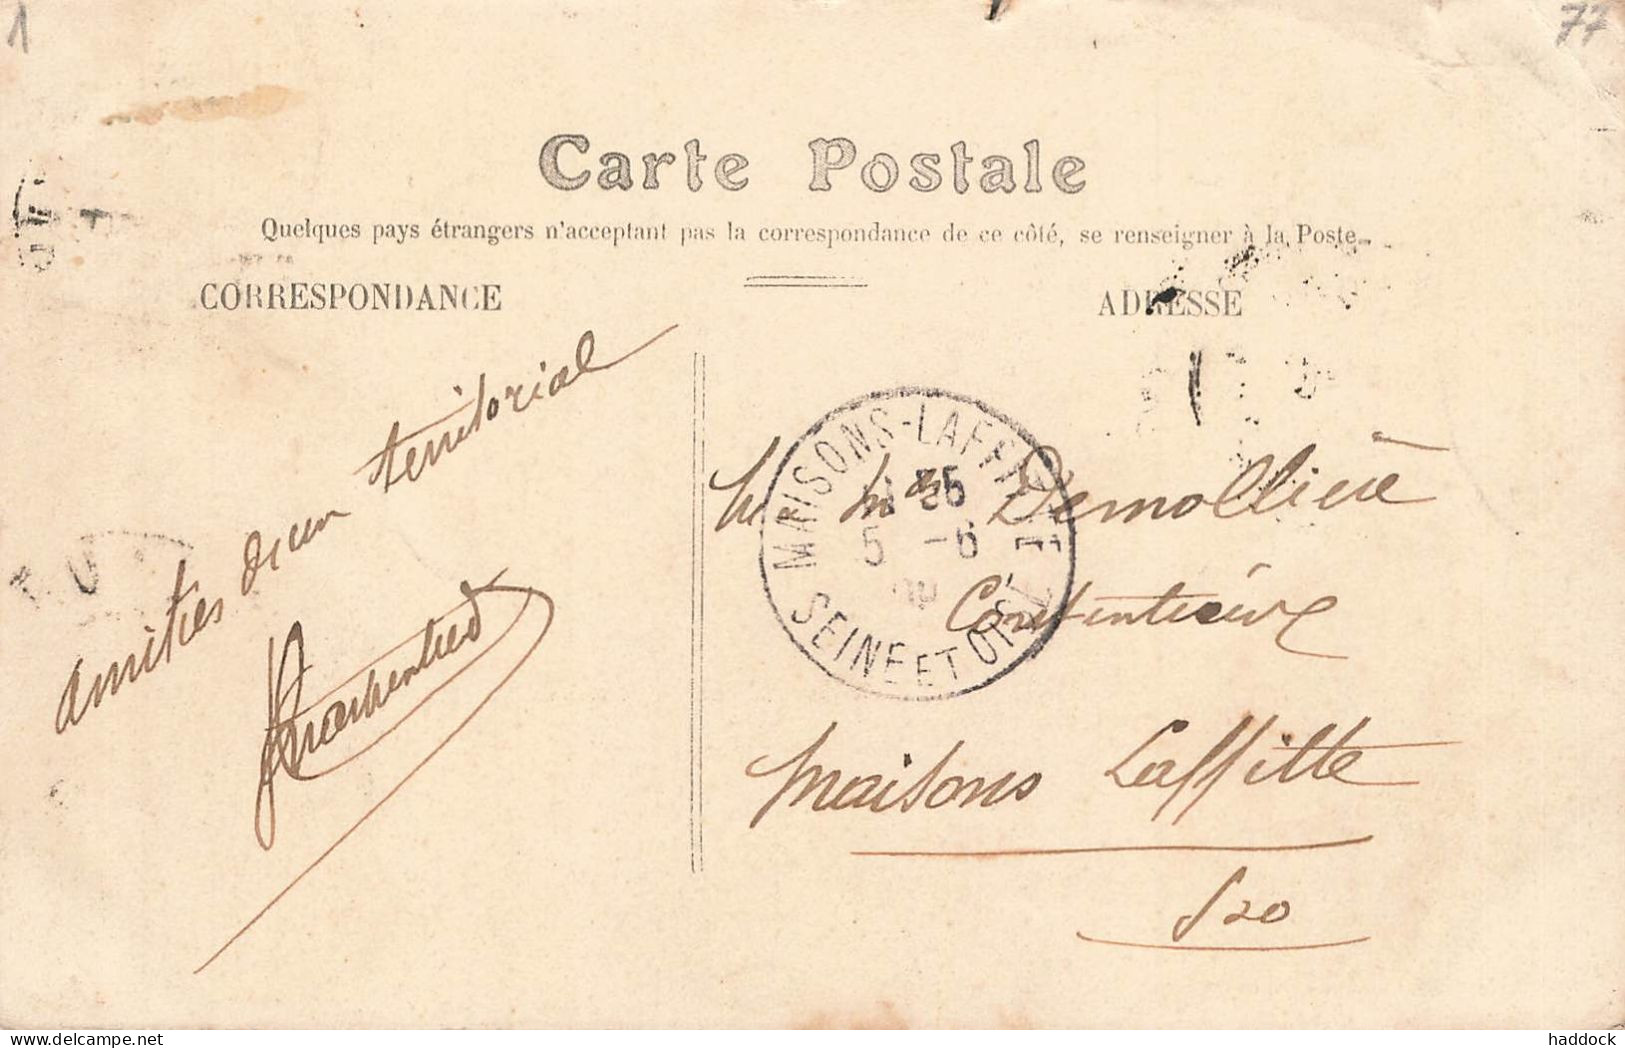 1
77
Carte Postale
Quelques pays étrangers n'acceptant pas la correspondance de ce côté, se renseigner à la Poste
CORRESPONDANCE
ADRESSE
amitiés d'un territorial
MAISONS-LAFFITTE
SEINE ET OISE
5 -6
Demollière
Maisons Laffitte
S&O
haddock